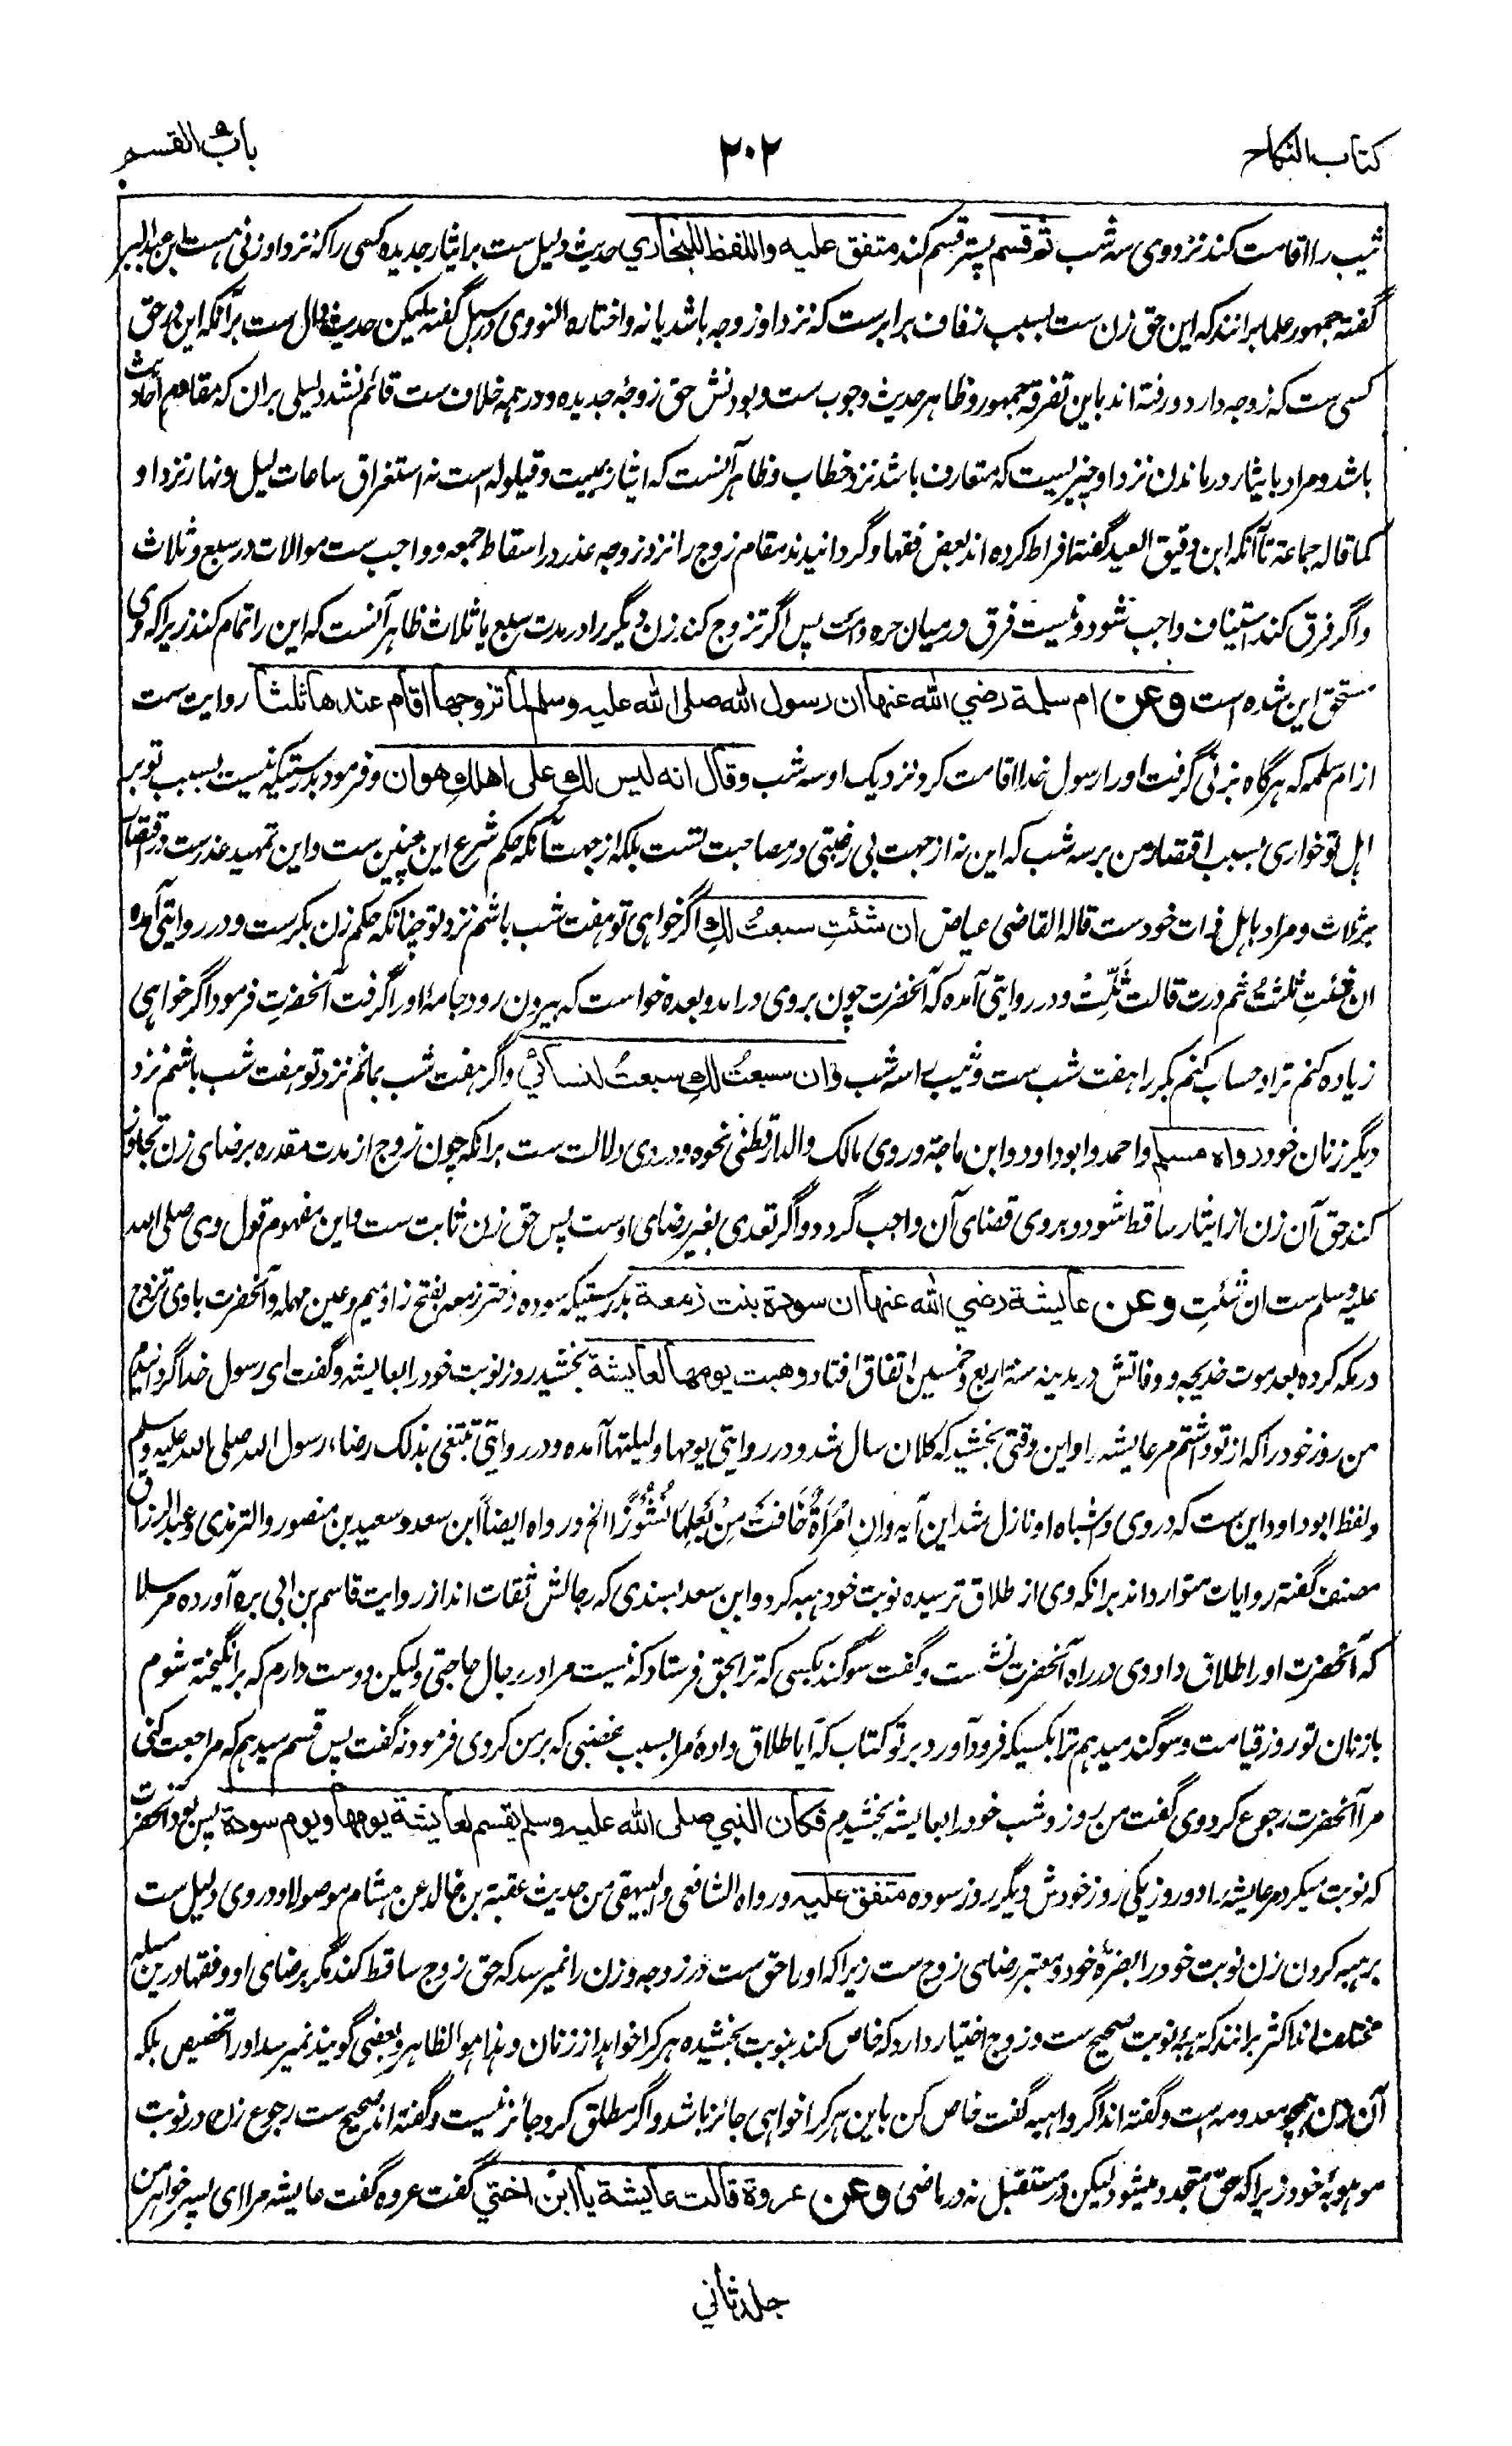 كتاب النكاح
۲۰۲
باب القسم
ثیب را اقامت کند نزد وی سه شب ثم قسم پستر قسم کند متفق علیه واللفظ للبخاري حدیث دلیل ست بر ایثار جدیده کسی را که نزد او زنی هست ابن عبدالبر
گفته جمهور علما برانند که این حق زن ست بسبب زفاف برابر ست که نزد او زوجه باشد یا نه و اختاره النووی در سبل گفته لیکن حدیث دال ست بر آنکه این در حق
کسی ست که زوجه دارد و رفته اند باین تفرقه جمهور و ظاهر حدیث وجوب ست و بودنش حق زوجهٔ جدیده و در همه خلاف ست قائم نشد دلیلی بران که مقاوم احادیث
باشد و مراد بایثار در ماندن نزد او چیزیست که متعارف باشد نزد خطاب و ظاهر آنست که ایثار بمبیت و قیلوله است نه استغراق ساعات لیل و نهار نزد او
کما قاله جماعة تا آنکه ابن دقیق العید گفته افراط کرده اند بعض فقها و گردانیدند مقام زوج را نزد زوجه عذر در اسقاط جمعه و واجب ست موالات در سبع و ثلاث
و اگر فرق کند استیناف واجب شود و نیست فرق درمیان حره و امت پس اگر تزوج کند زن دیگر را در مدت سبع یا ثلاث ظاهر آنست که این را تمام کند زیرا که وی
مستحق این شده است وعن ام سلمة رضي الله عنها ان رسول الله صلی الله علیه وسلم لما تزوجها اقام عندها ثلثا روایت ست
از ام سلمه که هرگاه بزنی گرفت او را رسول خدا اقامت کرد نزدیک او سه شب وقال انه لیس لكِ علی اهلكِ هوان و فرمود بدرستیکه نیست بسبب تو بر
اهل تو خواری بسبب اقتصار من بر سه شب که این نه از جهت بی رغبتی در مصاحبت تست بلکه از جهت آنکه حکم شرع این چنین ست و این تمهید عذرست در اقتصار
بر ثلاث و مراد باهل ذات خودست قاله القاضی عیاض ان شئتِ سبعتُ لكِ اگر خواهی تو هفت شب باشم نزد تو چنانکه حکم زن بکرست و در روایتی آمده
ان شئتِ ثلثتُ ثم درت قالت ثَلِّث و در روایتی آمده که آنحضرت چون بر وی درامد و بعده خواست که بیرون رود جامهٔ او را گرفت آنحضرت فرمود اگر خواهی
زیاده کنم ترا و حساب کنم بکر را هفت شب ست و ثیب را سه شب وان سبعتُ لكِ سبعتُ لنسائي و اگر هفت شب بمانم نزد تو هفت شب باشم نزد
دیگر زنان خود رواه مسلم و احمد و ابوداود و ابن ماجة و روی مالک والدارقطنی نحوه و در وی دلالت ست برانکه چون زوج از مدت مقدره برضای زن تجاوز
کند حق آن زن از ایثار ساقط شود و بر وی قضای آن واجب گردد و اگر تعدی بغیر رضای اوست پس حق زن ثابت ست و این مفهوم قول وی صلی الله
علیه وسلم ست ان شئتِ وعن عایشة رضي الله عنها ان سودة بنت زمعة بدرستیکه سوده دختر زمعه بفتح زا و میم و عین مهمله و آنحضرت با وی تزوج
در مکه کرده بعد موت خدیجه و وفاتش در مدینه سنه اربع و خمسین اتفاق افتاد وهبت یومها لعایشة بخشید روز نوبت خود را بعایشه و گفت ای رسول خدا گردانیدم
من روز خود را که از تو داشتم مر عایشه را و این وقتی بخشید که کلان سال شد و در روایتی یومها و لیلتها آمده و در روایتی تبتغی بذلک رضاء رسول الله صلی الله علیه وسلم
و لفظ ابوداود این ست که در وی و اشباه او نازل شد این آیه وَانِ امْرَاَةٌ خَافَتْ مِنْ بَعْلِهَا نُشُوْزًا الخ و رواه ایضاً ابن سعد و سعید بن منصور والترمذی و عبدالرزاق
مصنف گفته روایات متواردانند برانکه وی از طلاق ترسیده نوبت خود هبه کرد و ابن سعد بسندی که رجالش ثقات اند از روایت قاسم بن ابی بره آورده مرسلا
که آنحضرت او را طلاق داد وی در راه آنحضرت نشست و گفت سوگند بکسی که ترا بحق فرستاد که نیست مرا در رجال حاجتی ولیکن دوست دارم که برانگیخته شوم
با زنان تو روز قیامت و سوگند میدهم ترا بکسیکه فرود آورد بر تو کتاب که آیا طلاق دادهٔ مرا بسبب غضبی که بر من کردی فرمود نه گفت پس قسم میدهم که مراجعت کنی
مرا آنحضرت رجوع کرد وی گفت من روز و شب خود را بعایشه بخشیدم فکان النبي صلی الله علیه وسلم یقسم لعایشة یومها ویوم سودة پس بود آنحضرت
که نوبت میکرد مر عایشه را دو روز یکی روز خودش دیگر روز سوده متفق علیه و رواه الشافعی والبیهقی من حدیث عقبة بن خالد عن هشام موصولا و در وی دلیل ست
بر هبه کردن زن نوبت خود را بضرهٔ خود و معتبر رضای زوج ست زیرا که او را حق ست در زوجه و زن را نمیرسد که حق زوج ساقط کند مگر برضای او و فقها درین مسئله
مختلف اند اکثر برانند که هبهٔ نوبت صحیح ست و زوج اختیار دارد که خاص کند بنوبت بخشیده هر کرا خواهد از زنان و هذا هو الظاهر و بعضی گویند نمیرسد او را تخصیص بلکه
آن زن همچو معدومه است و گفته اند اگر واهبه گفت خاص کن باین هر کرا خواهی جائز باشد و اگر مطلق کرد جائز نیست و گفته اند صحیح ست رجوع زن در نوبت
موهوبهٔ خود زیرا که حق متجدد میشود لیکن در مستقبل نه در ماضی وعن عروة قالت عایشة یا ابن اختي گفت عروه گفت عایشه مرا ای پسر خواهر من
جلد ثاني